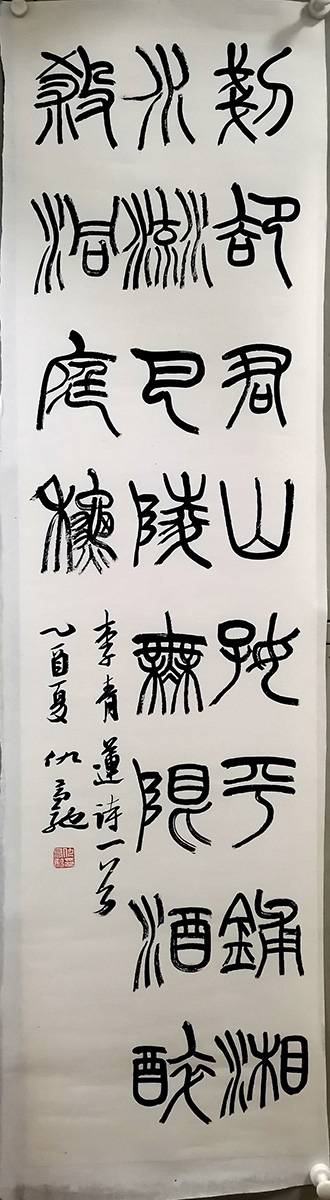 剗卻君山好平鋪湘
水流巴陵無限酒醉
殺洞庭穐
李青蓮诗一首
乙酉夏 仇高驰